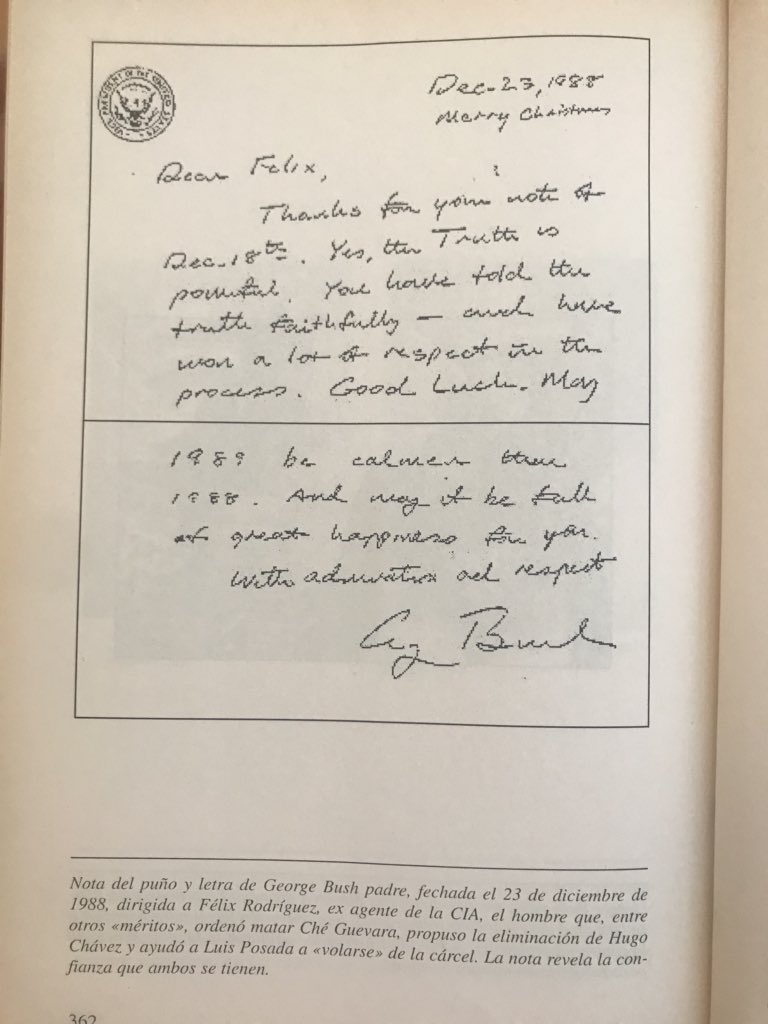 VICE PRESIDENT OF THE UNITED STATES
Dec. 23, 1988
Merry Christmas
Dear Felix,
Thanks for your note of
Dec. 18th. Yes, the Truth is
powerful. You have told the
truth faithfully — and have
won a lot of respect in the
process. Good Luck. May
1989 be calmer than
1988. And may it be full
of great happiness for you.
With admiration and respect
Bush
Nota del puño y letra de George Bush padre, fechada el 23 de diciembre de
1988, dirigida a Félix Rodríguez, ex agente de la CIA, el hombre que, entre
otros «méritos», ordenó matar Ché Guevara, propuso la eliminación de Hugo
Chávez y ayudó a Luis Posada a «volarse» de la cárcel. La nota revela la con-
fianza que ambos se tienen.
362